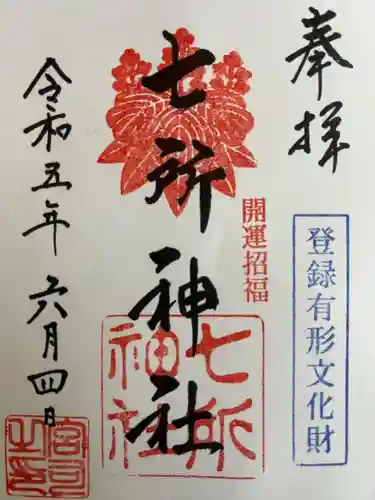 奉拝
登録有形文化財
開運招福
七所神社
七所神社
令和五年六月四日
宮司之印